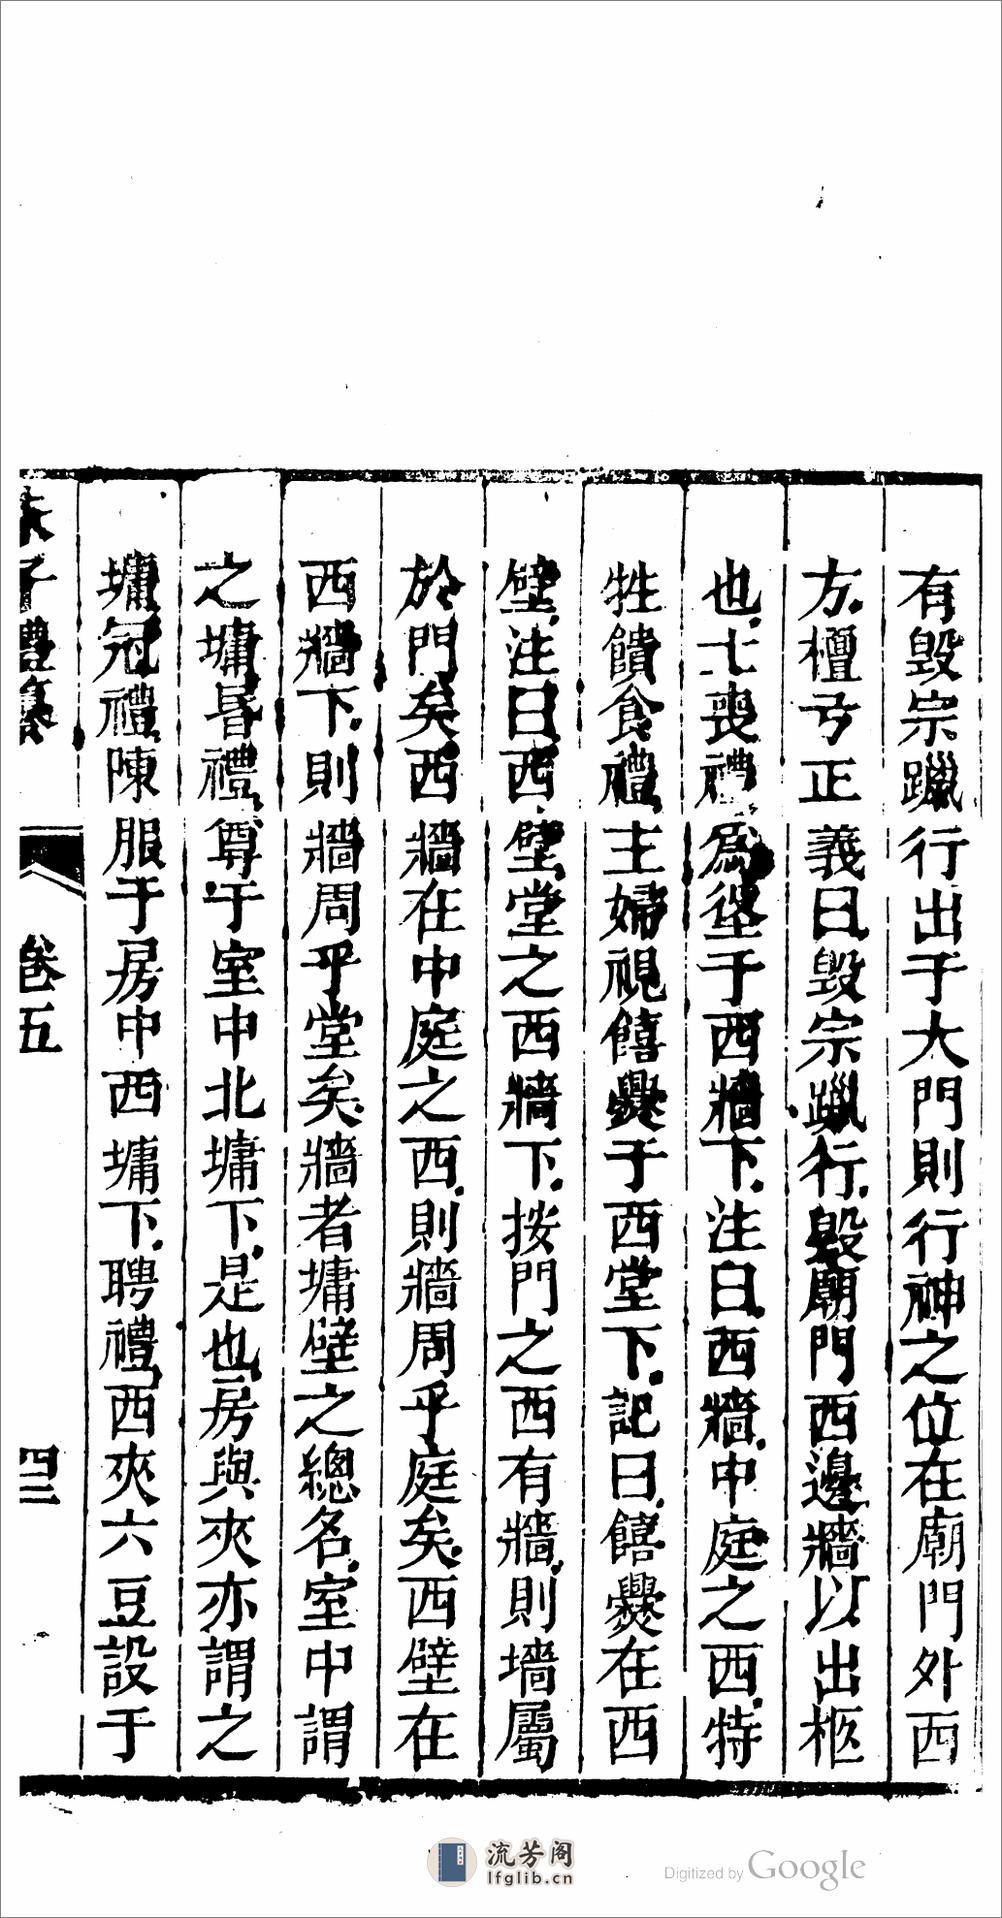 有毁宗躐行出于大門則行神之位在廟門外西
方檀弓正義曰毁宗躐行毁廟門西邊牆以出柩
也士喪禮爲垼于西牆下注曰西牆中庭之西特
牲饋食禮主婦視饎爨于西堂下記曰饎爨在西
壁注曰西壁堂之西牆下按門之西有牆則墻屬
於門矣西牆在中庭之西則牆周乎庭矣西壁在
西牆下則牆周乎堂矣牆者墉壁之總名室中謂
之墉昬禮尊于室中北墉下是也房與夾亦謂之
墉冠禮陳服于房中西墉下聘禮西夾六豆設于
朱子禮纂 卷五 四三
流芳阁
lfglib.cn
Digitized by Google